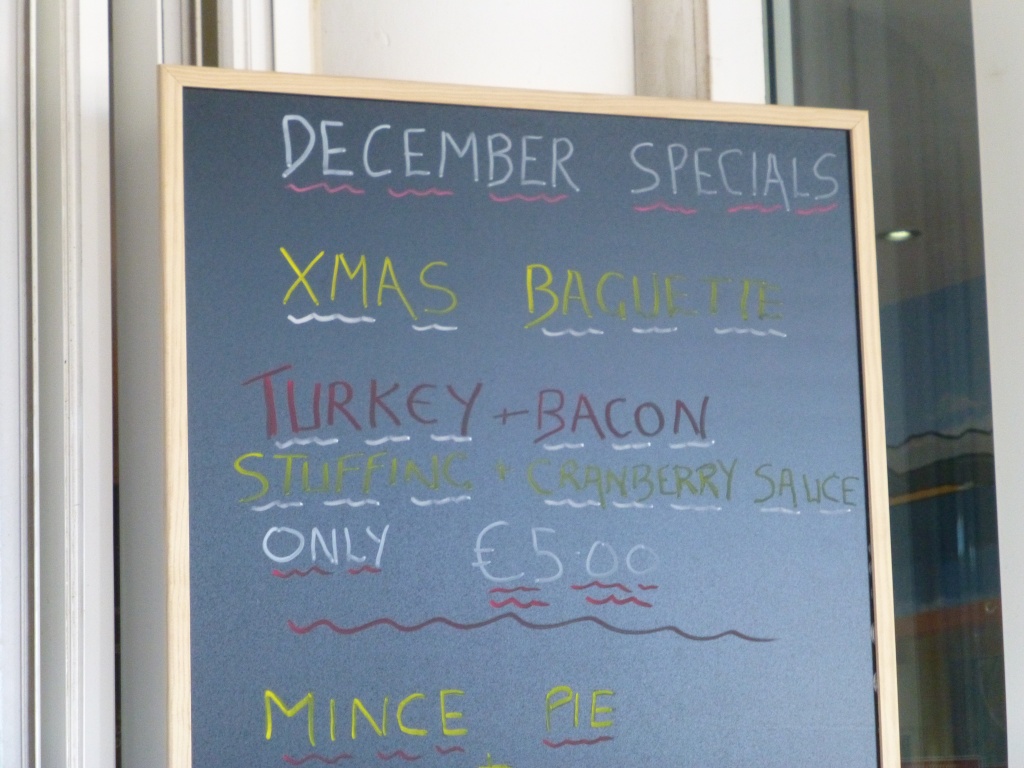 DECEMBER SPECIALS
XMAS BAGUETTE
TURKEY + BACON
STUFFING + CRANBERRY SAUCE
ONLY €5.00
MINCE PIE